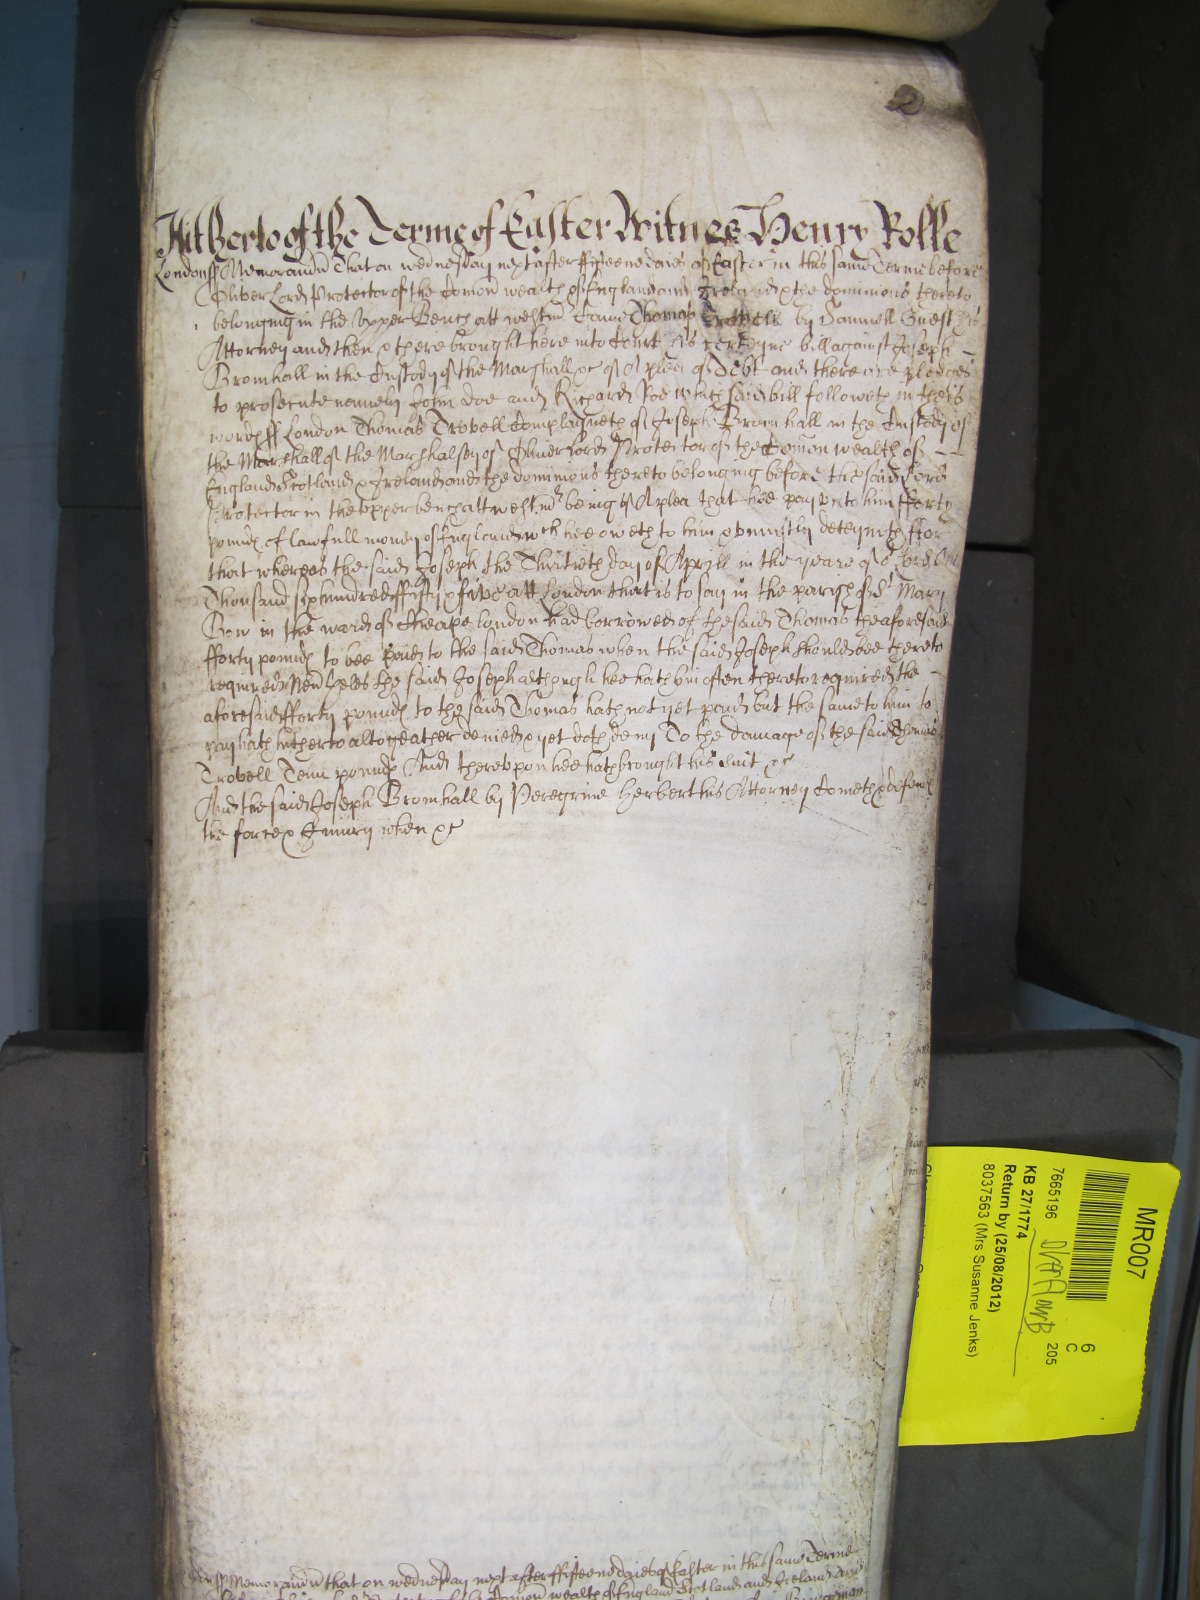 Hitherto of the Terme of Easter Witnes Henry Rolle
London ss Memorand That on wednesday next after fifteene daies of Easter in this same Terme before
Oliver Lord Protector of the Comon wealth of England and Ireland & the dominions thereto
belonging in the Upper Bench att westmr Came Thomas Trovell by Samuell Guest his
Attorney and then & there brought here into Court his certeyne bill against Joseph
Bromhall in the Custody of the Marshall &c of A plea of Debt and there are pledges
to prosecute namely John Doe and Richard Roe which said bill followeth in theis
wordes ss London Thomas Trovell Complayneth of Joseph Bromhall in the Custody of
the Marshall of the Marshalsey of Oliver Lord Protector of the Comon wealth of
England Scotland & Ireland and the dominions thereto belonging before the said Lord
Protector in the upper bench att westmr being of A plea that hee pay unto him fforty
pounds of lawfull money of England wch hee oweth to him & uniustly deteyneth ffor
that whereas the said Joseph the Thirtieth day of Aprill in the yeare of or Lord One
Thousand six hundred ffifty & five att London that is to say in the parish of St Mary
Bow in the ward of Cheape London had borrowed of the said Thomas the aforesaid
fforty pounds to bee paid to the said Thomas when the said Joseph should bee thereto
required Neverthelesse the said Joseph although hee hath bin often thereto required the
aforesaid fforty pounds to the said Thomas hath not yet paid but the same to him to
pay hath hitherto altogeather denied & yet doth deny To the damage of the said Thomas
Trovell Tenn pounds And thereupon hee hath brought his suit &c
And the said Joseph Bromhall by Peregrine Herbert his Attorney Cometh & defends
the force & Iniury when &c
ss Memorand that on wednesday next after ffifteene daies of Easter in this same Terme
Comon wealth of England Scotland and Ireland and
MR007
6
C
7665196
205
KB 27/1774
Return by (25/08/2012)
8037563 (Mrs Susanne Jenks)